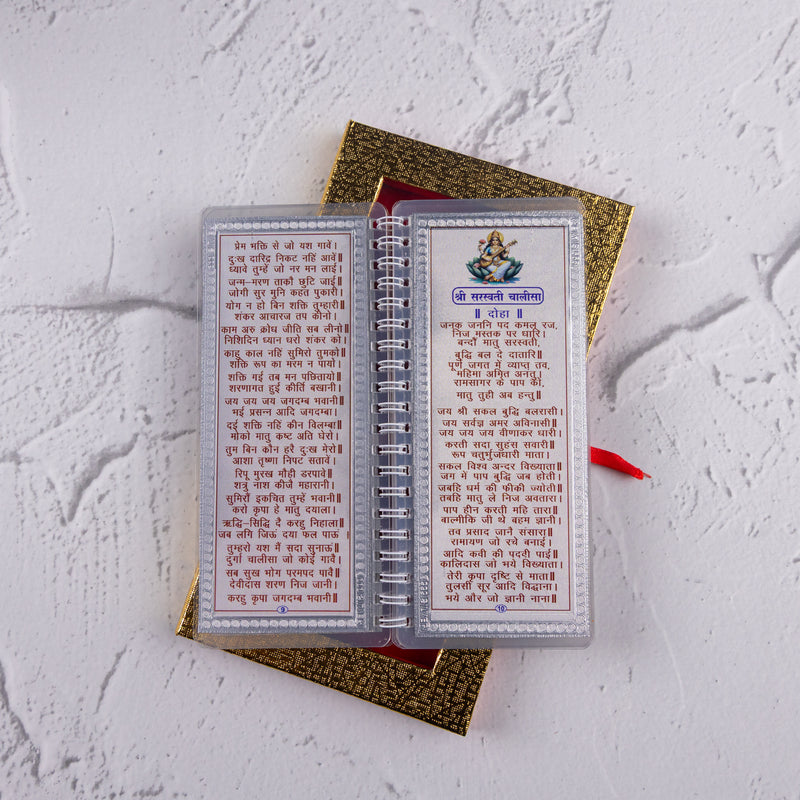 प्रेम भक्ति से जो यश गावें।
दुःख दारिद्र निकट नहिं आवें॥
ध्यावे तुम्हें जो नर मन लाई।
जन्म–मरण ताकौ छुटि जाई॥
जोगी सुर मुनि कहत पुकारी।
योग न हो बिन शक्ति तुम्हारी॥
शंकर आचारज तप कीनो।
काम अरु क्रोध जीति सब लीनो॥
निशिदिन ध्यान धरो शंकर को।
काहू काल नहिं सुमिरो तुमको॥
शक्ति रूप का मरम न पायो।
शक्ति गई तब मन पछितायो॥
शरणागत हुई कीर्ति बखानी।
जय जय जय जगदम्ब भवानी॥
भई प्रसन्न आदि जगदम्बा।
दई शक्ति नहिं कीन विलम्बा॥
मोको मातु कष्ट अति घेरो।
तुम बिन कौन हरै दुःख मेरो॥
आशा तृष्णा निपट सतावें।
रिपू मुरख मौही डरपावे॥
शत्रु नाश कीजै महारानी।
सुमिरौं इकचित तुम्हें भवानी॥
करो कृपा हे मातु दयाला।
ऋद्धि–सिद्धि दै करहु निहाला॥
जब लगि जिऊं दया फल पाऊं ।
तुम्हरो यश मैं सदा सुनाऊं॥
दुर्गा चालीसा जो कोई गावै।
सब सुख भोग परमपद पावै॥
देवीदास शरण निज जानी।
करहु कृपा जगदम्ब भवानी॥
9
श्री सरस्वती चालीसा
॥ दोहा ॥
जनक जननि पद कमल रज,
निज मस्तक पर धारि।
बन्दौं मातु सरस्वती,
बुद्धि बल दे दातारि॥
पूर्ण जगत में व्याप्त तव,
महिमा अमित अनंतु।
रामसागर के पाप को,
मातु तुही अब हन्तु॥
जय श्री सकल बुद्धि बलरासी।
जय सर्वज्ञ अमर अविनासी॥
जय जय जय वीणाकर धारी।
करती सदा सुहंस सवारी॥
रूप चतुर्भुजधारी माता।
सकल विश्व अन्दर विख्याता॥
जग में पाप बुद्धि जब होती।
जबहि धर्म की फीकी ज्योती॥
तबहि मातु ले निज अवतारा।
पाप हीन करती महि तारा॥
बाल्मीकि जी थे बहम ज्ञानी।
तव प्रसाद जानै संसारा॥
रामायण जो रचे बनाई।
आदि कवी की पदवी पाई॥
कालिदास जो भये विख्याता।
तेरी कृपा दृष्टि से माता॥
तुलसी सूर आदि विद्वाना।
भये और जो ज्ञानी नाना॥
10